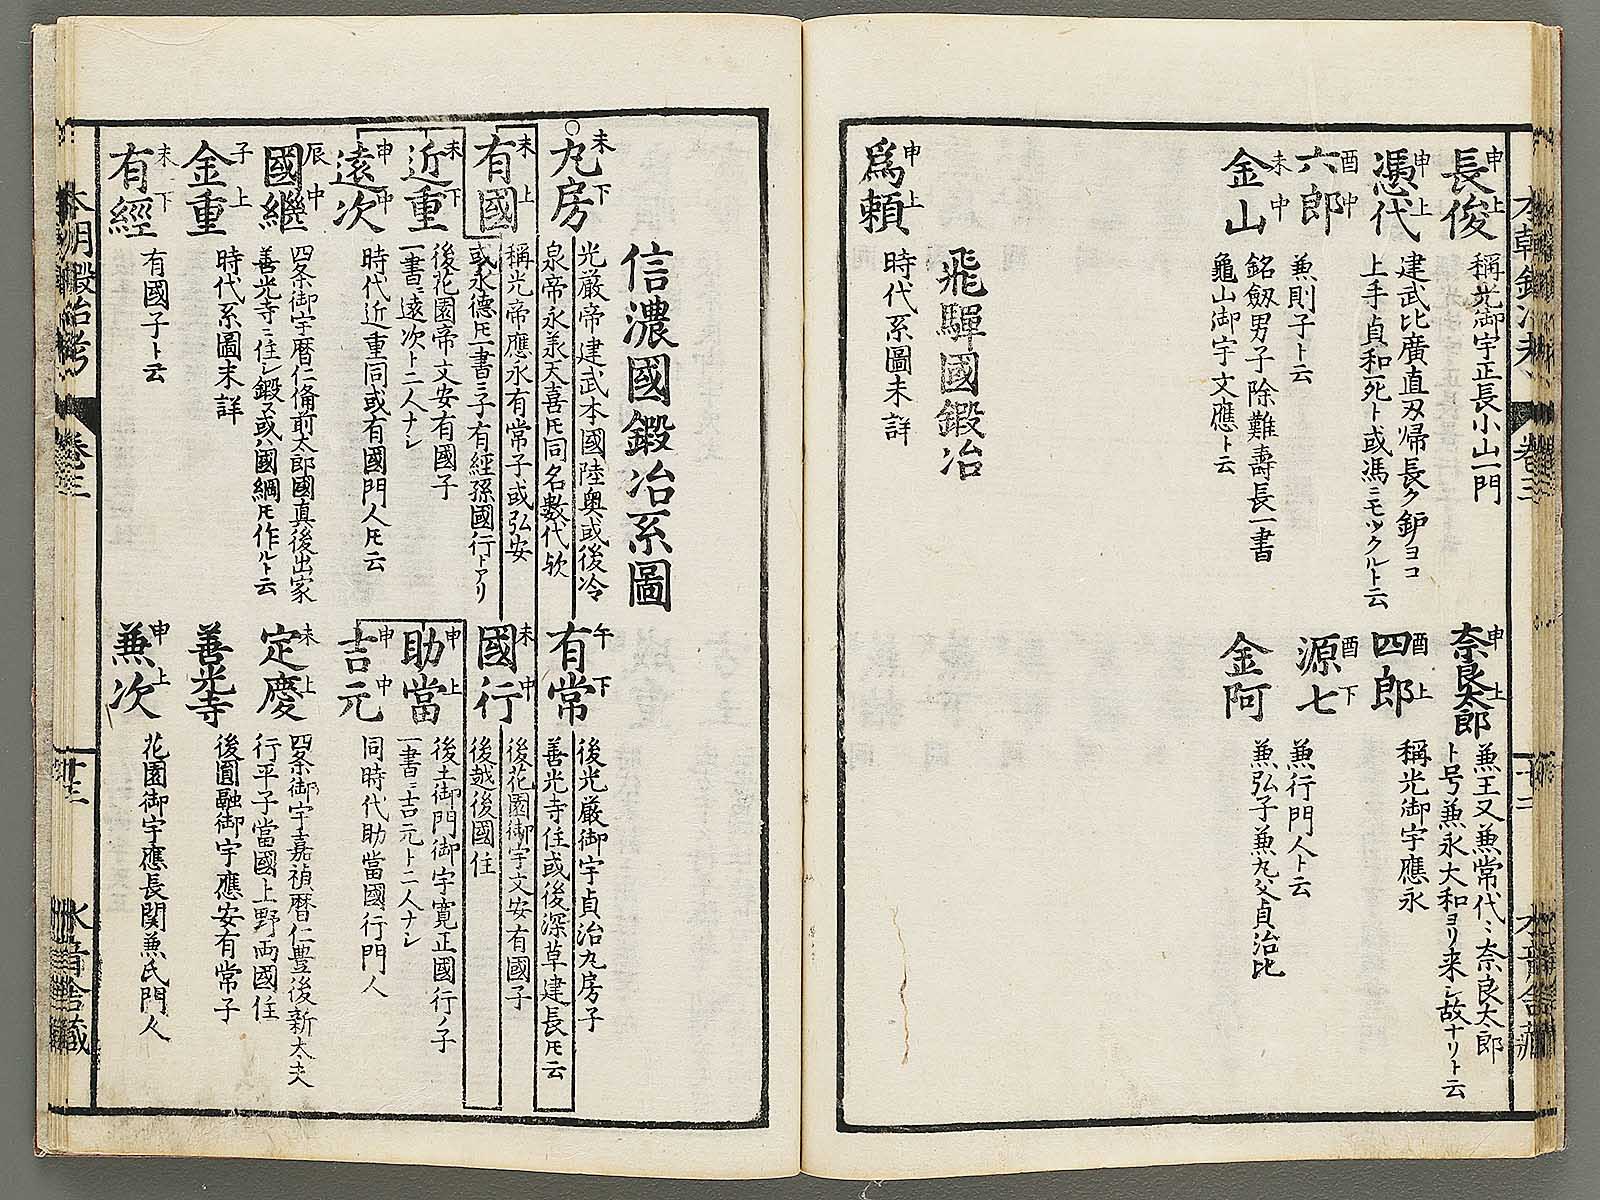 本朝鍛冶考
巻三
十二
水音舎蔵
申上
長俊
稱光御宇正長小山一門
申上
奈良太郎
兼王又兼常代〻奈良太郎
ト号兼永大和ヨリ来シ故ナリト云
申上
憑代
建武比廣直刄帰長ク鈩ヨコ
上手貞和一死ト或馮ニモツクルト云
酉上
四郎
稱光御宇應永
酉中
六郎
兼則子ト云
酉下
源七
兼行門人ト云
未中
金山
銘劔男子除難壽長一書
龜山御宇文應ト云
金阿
兼弘子兼九父貞治比
飛騨國鍛冶
申上
爲頼
時代系圖未詳
信濃國鍛冶系圖
未下
九房
光厳帝建武本國陸奥或後冷
泉帝永義天喜𪜈同名數代欤
午下
有常
後光厳御宇貞治九房子
善光寺住或後深草建長𪜈云
未上
有國
稱光帝應永有常子或弘安
或永徳𪜈一書三子有經孫國行トアリ
未中
國行
後花園御宇文安有國子
後越後國住
未下
近重
後花園帝文安有國子
一書ニ遠次ト二人ナシ
申上
助當
後土御門御宇寛正國行ノ子
一書ニ吉元ト二人ナシ
申中
遠次
時代近重同或有國門人𪜈云
申中
吉元
同時代助當國行門人
辰中
國繼
四条御宇暦仁備前太郎國真後出家
善光寺ニ住シ鍛ス或ハ國綱𪜈作ルト云
未上
定慶
四条御宇嘉禎暦仁豊後新太夫
行平子當國上野両國住
子上
金重
時代系圖未詳
善光寺
後圓融御宇應安有常子
未下
有經
有國子ト云
申上
兼次
花園御宇應長関兼氏門人
本朝鍛冶考
巻三
十三
水音舎蔵